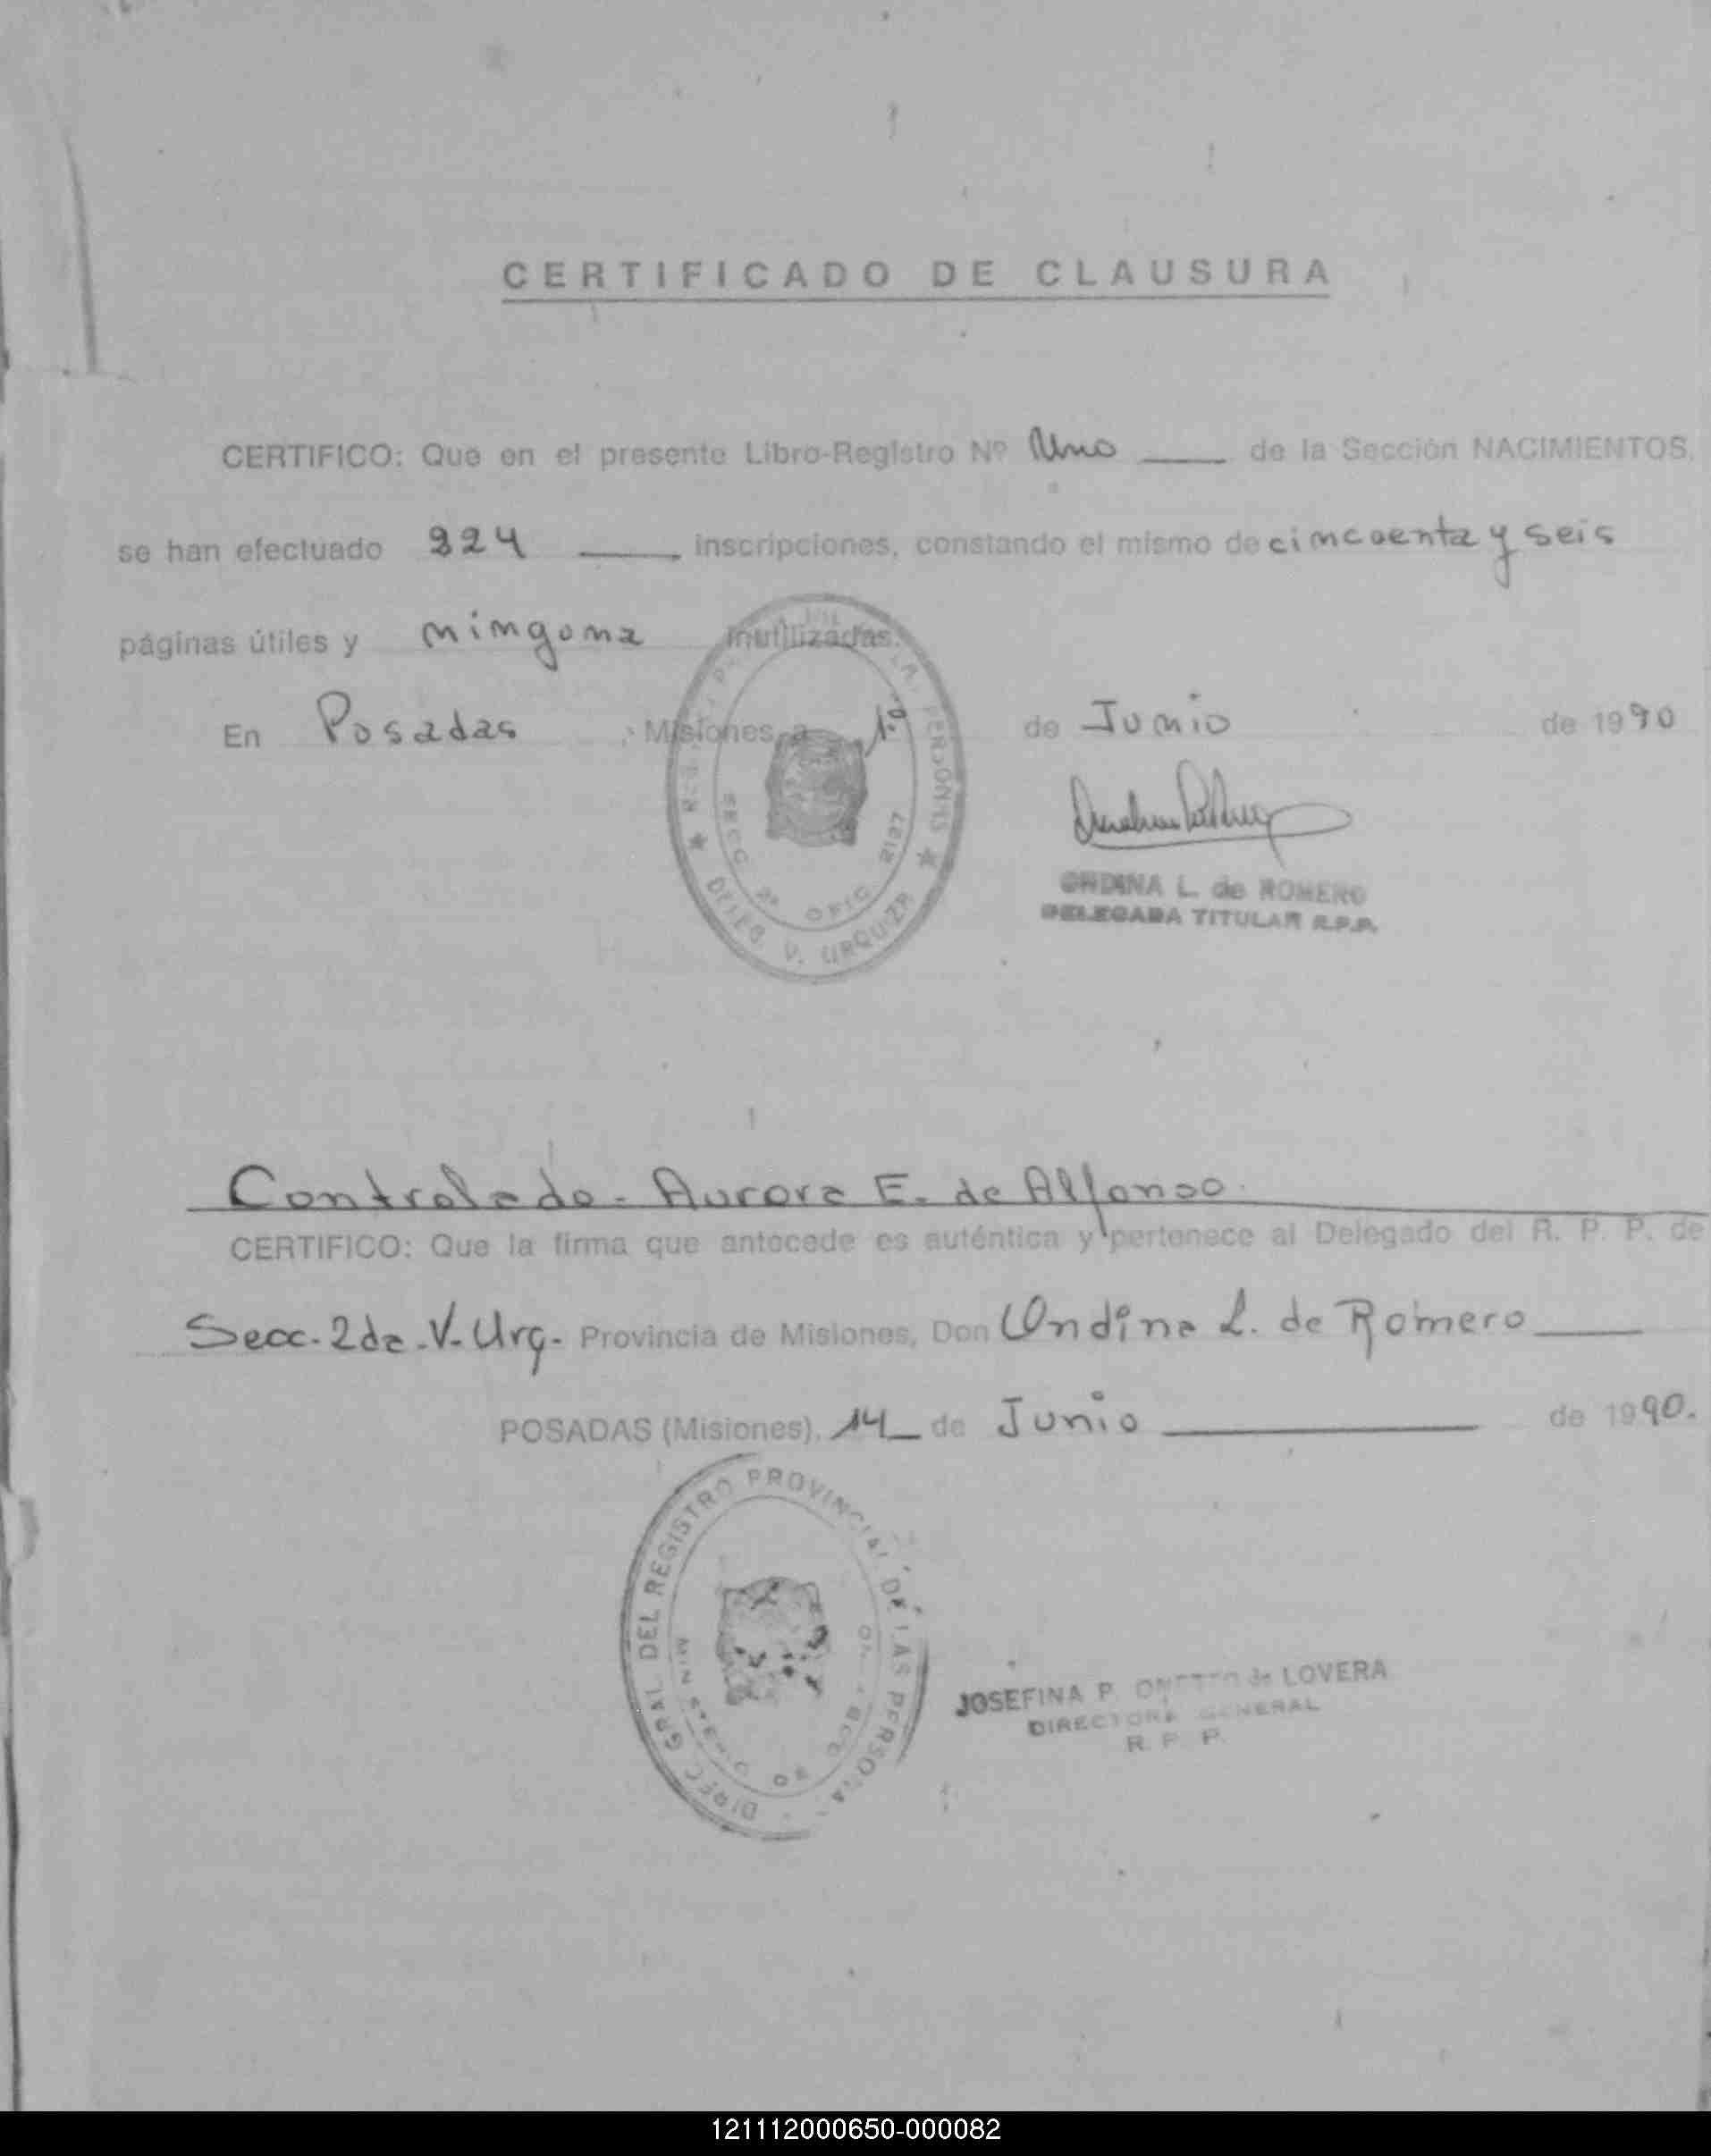 CERTIFICADO DE CLAUSURA
CERTIFICO: Que en el presente Libro-Registro Nº Uno de la Sección NACIMIENTOS,
se han efectuado 224 inscripciones, constando el mismo de cincuenta y seis
páginas útiles y ninguna inutilizadas.
En Posadas, Misiones, a 1º de Junio de 1990
ONDINA L. de ROMERO
DELEGADA TITULAR R.P.P.
SECC. 2ª OFIC. 2127
DELEG. V. URQUIZA
Controlado - Aurora E. de Alfonso.
CERTIFICO: Que la firma que antecede es auténtica y pertenece al Delegado del R. P. P. de
Secc. 2da. V. Urq. Provincia de Misiones, Don Ondina L. de Romero
POSADAS (Misiones), 14 de Junio de 1990.
DIREC. GRAL. DEL REGISTRO PROVINCIAL DE LAS PERSONAS
JOSEFINA P. de LOVERA
DIRECTORA GENERAL
R. P. P.
121112000650-000082